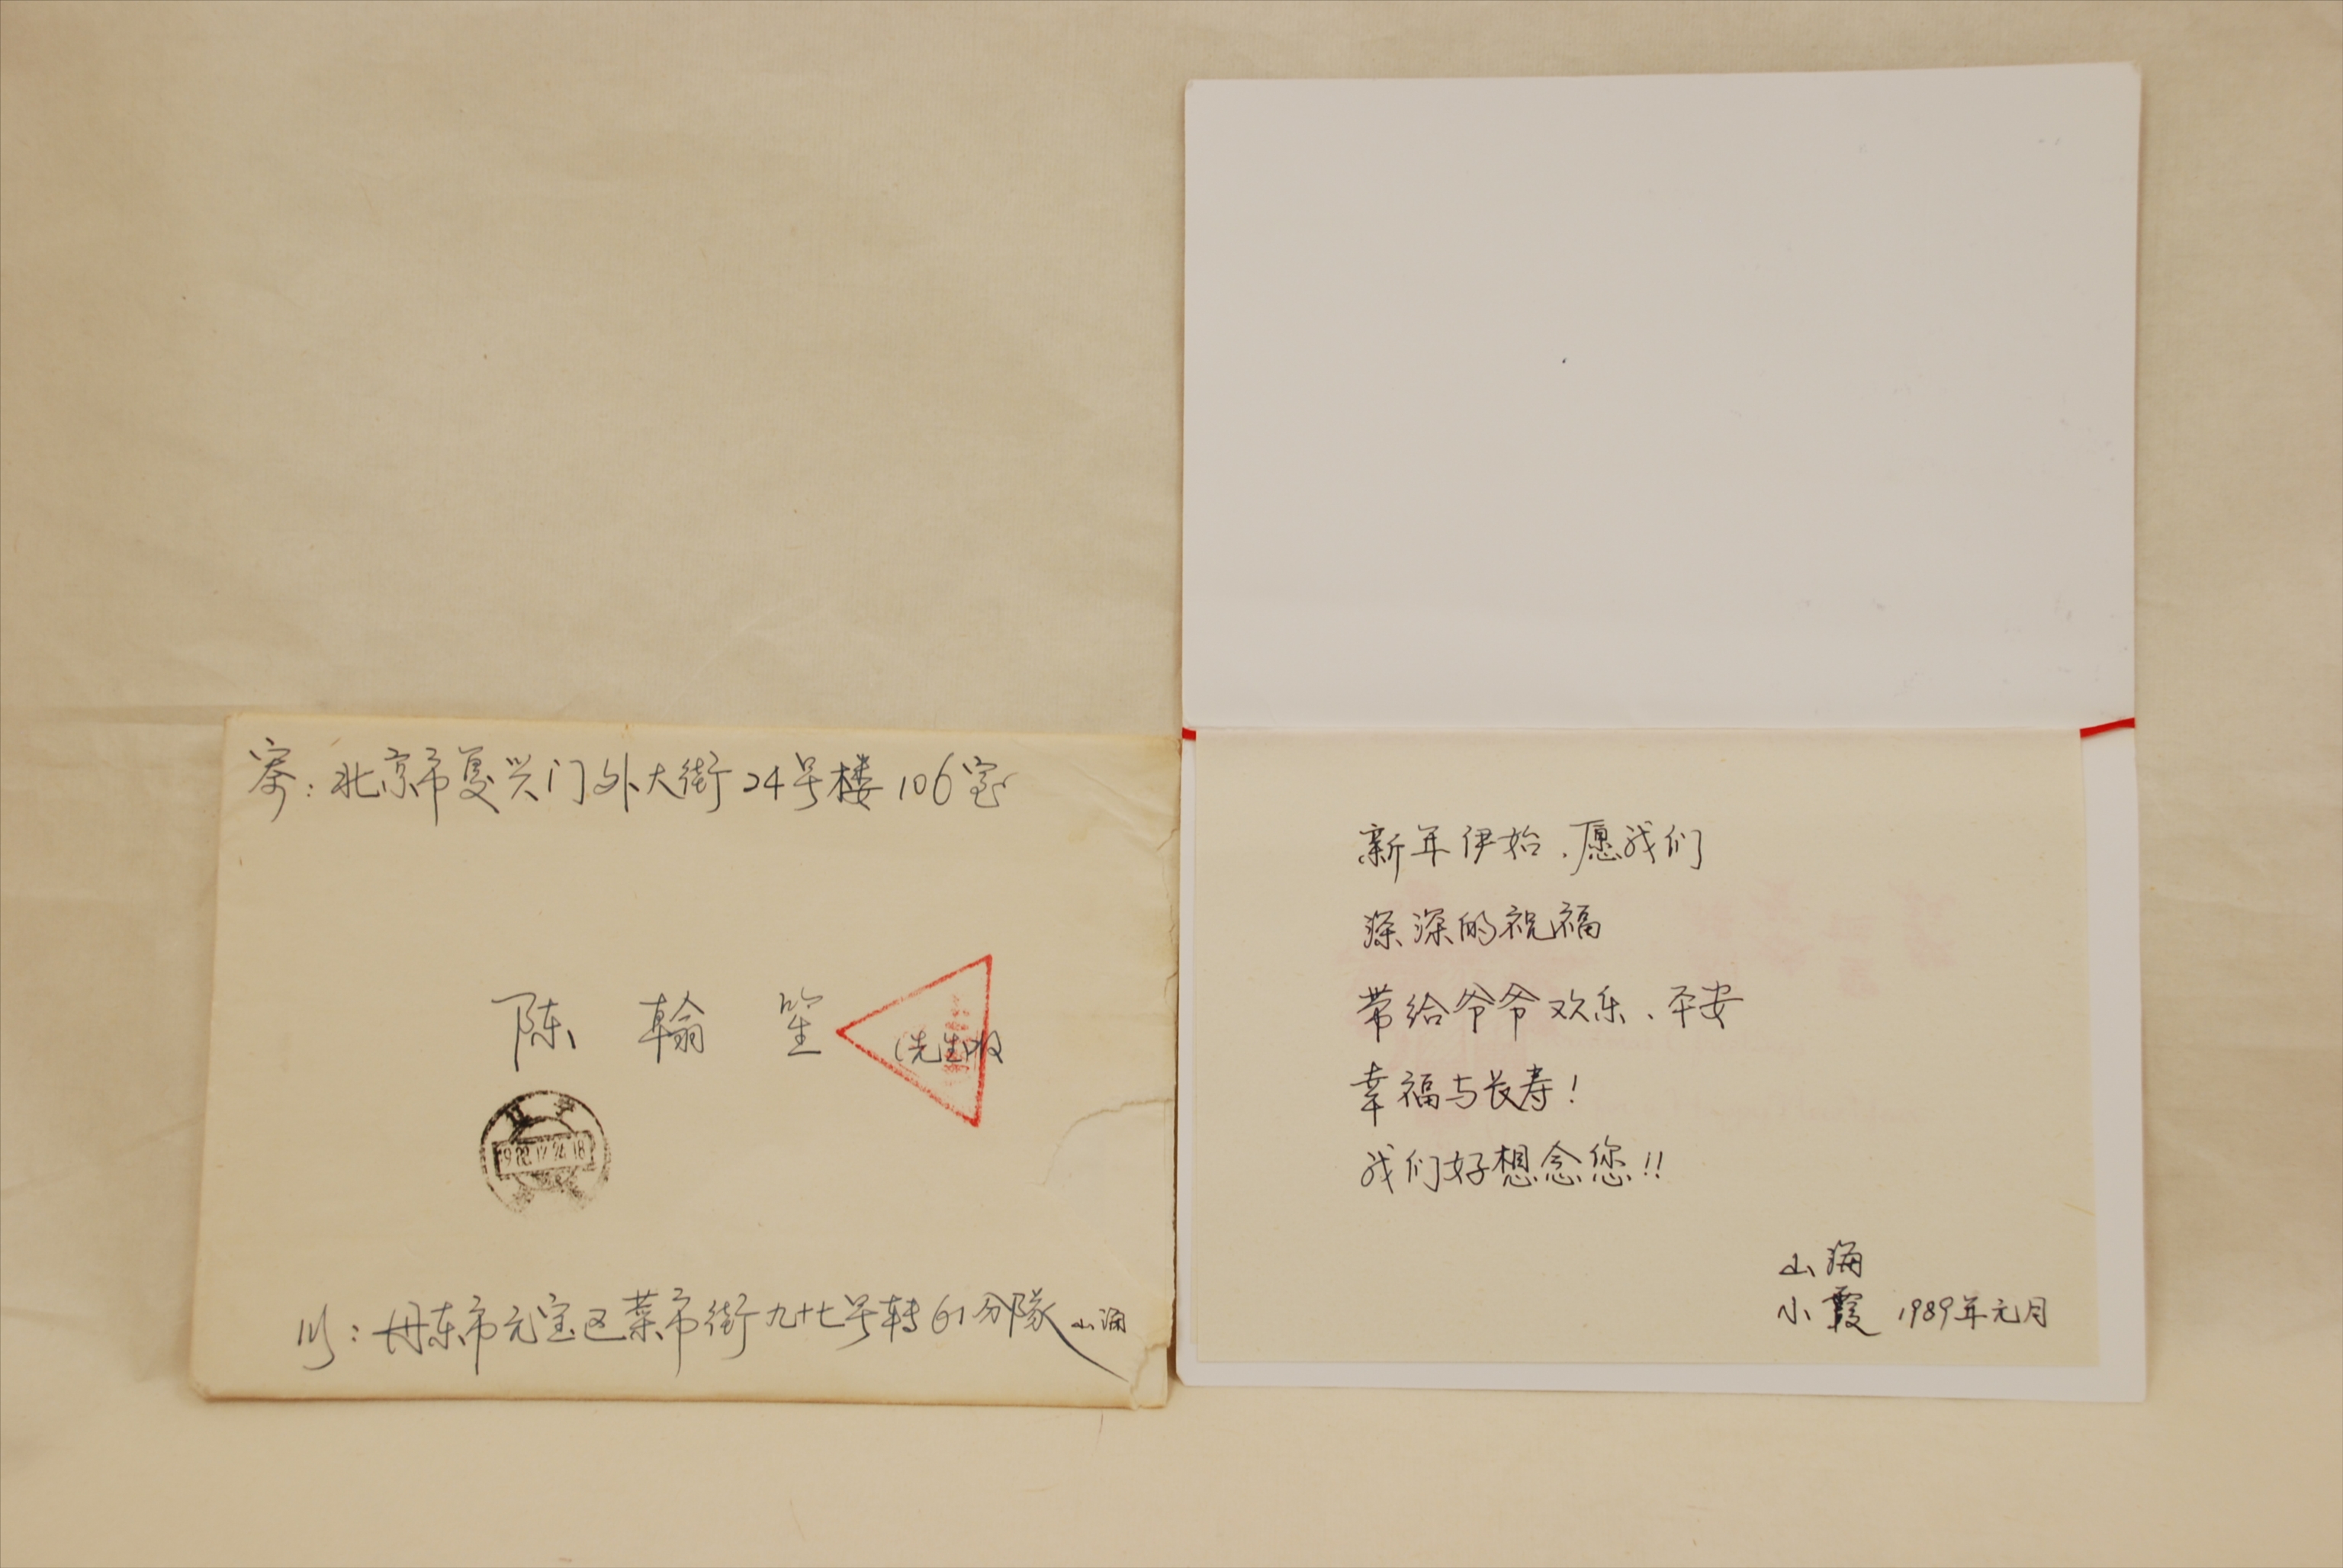 寄：北京市复兴门外大街24号楼106室
陈翰笙（先生收
辽宁
丹东市元宝区菜市街九十七号转61分隊 山海
新年伊始、愿我们
深深的祝福
带给爷爷欢乐、平安
幸福与长寿！
我们好想念您！！
山海
小霞 1989年元月